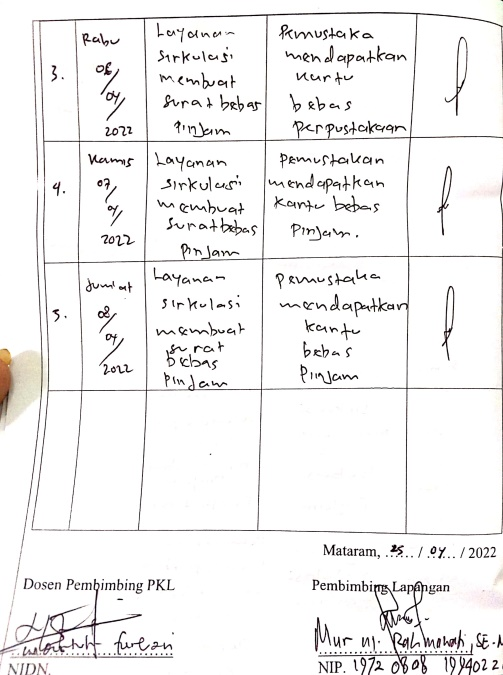 3.
Rabu
06/
04/
2022
Layanan
sirkulasi
membuat
surat bebas
pinjam
Pemustaka
mendapatkan
kartu
bebas
perpustakaan
4.
Kamis
07/
04/
2022
Layanan
sirkulasi
membuat
surat bebas
pinjam
Pemustakan
mendapatkan
kartu bebas
pinjam.
5.
Jumiat
08/
04/
2022
Layanan
sirkulasi
membuat
surat
bebas
pinjam
Pemustaka
mendapatkan
kartu
bebas
pinjam
Mataram, 25 / 04 / 2022
Dosen Pembimbing PKL
Pembimbing Lapangan
Rahmawati, SE.
NIDN.
NIP. 1972 0808 1994022